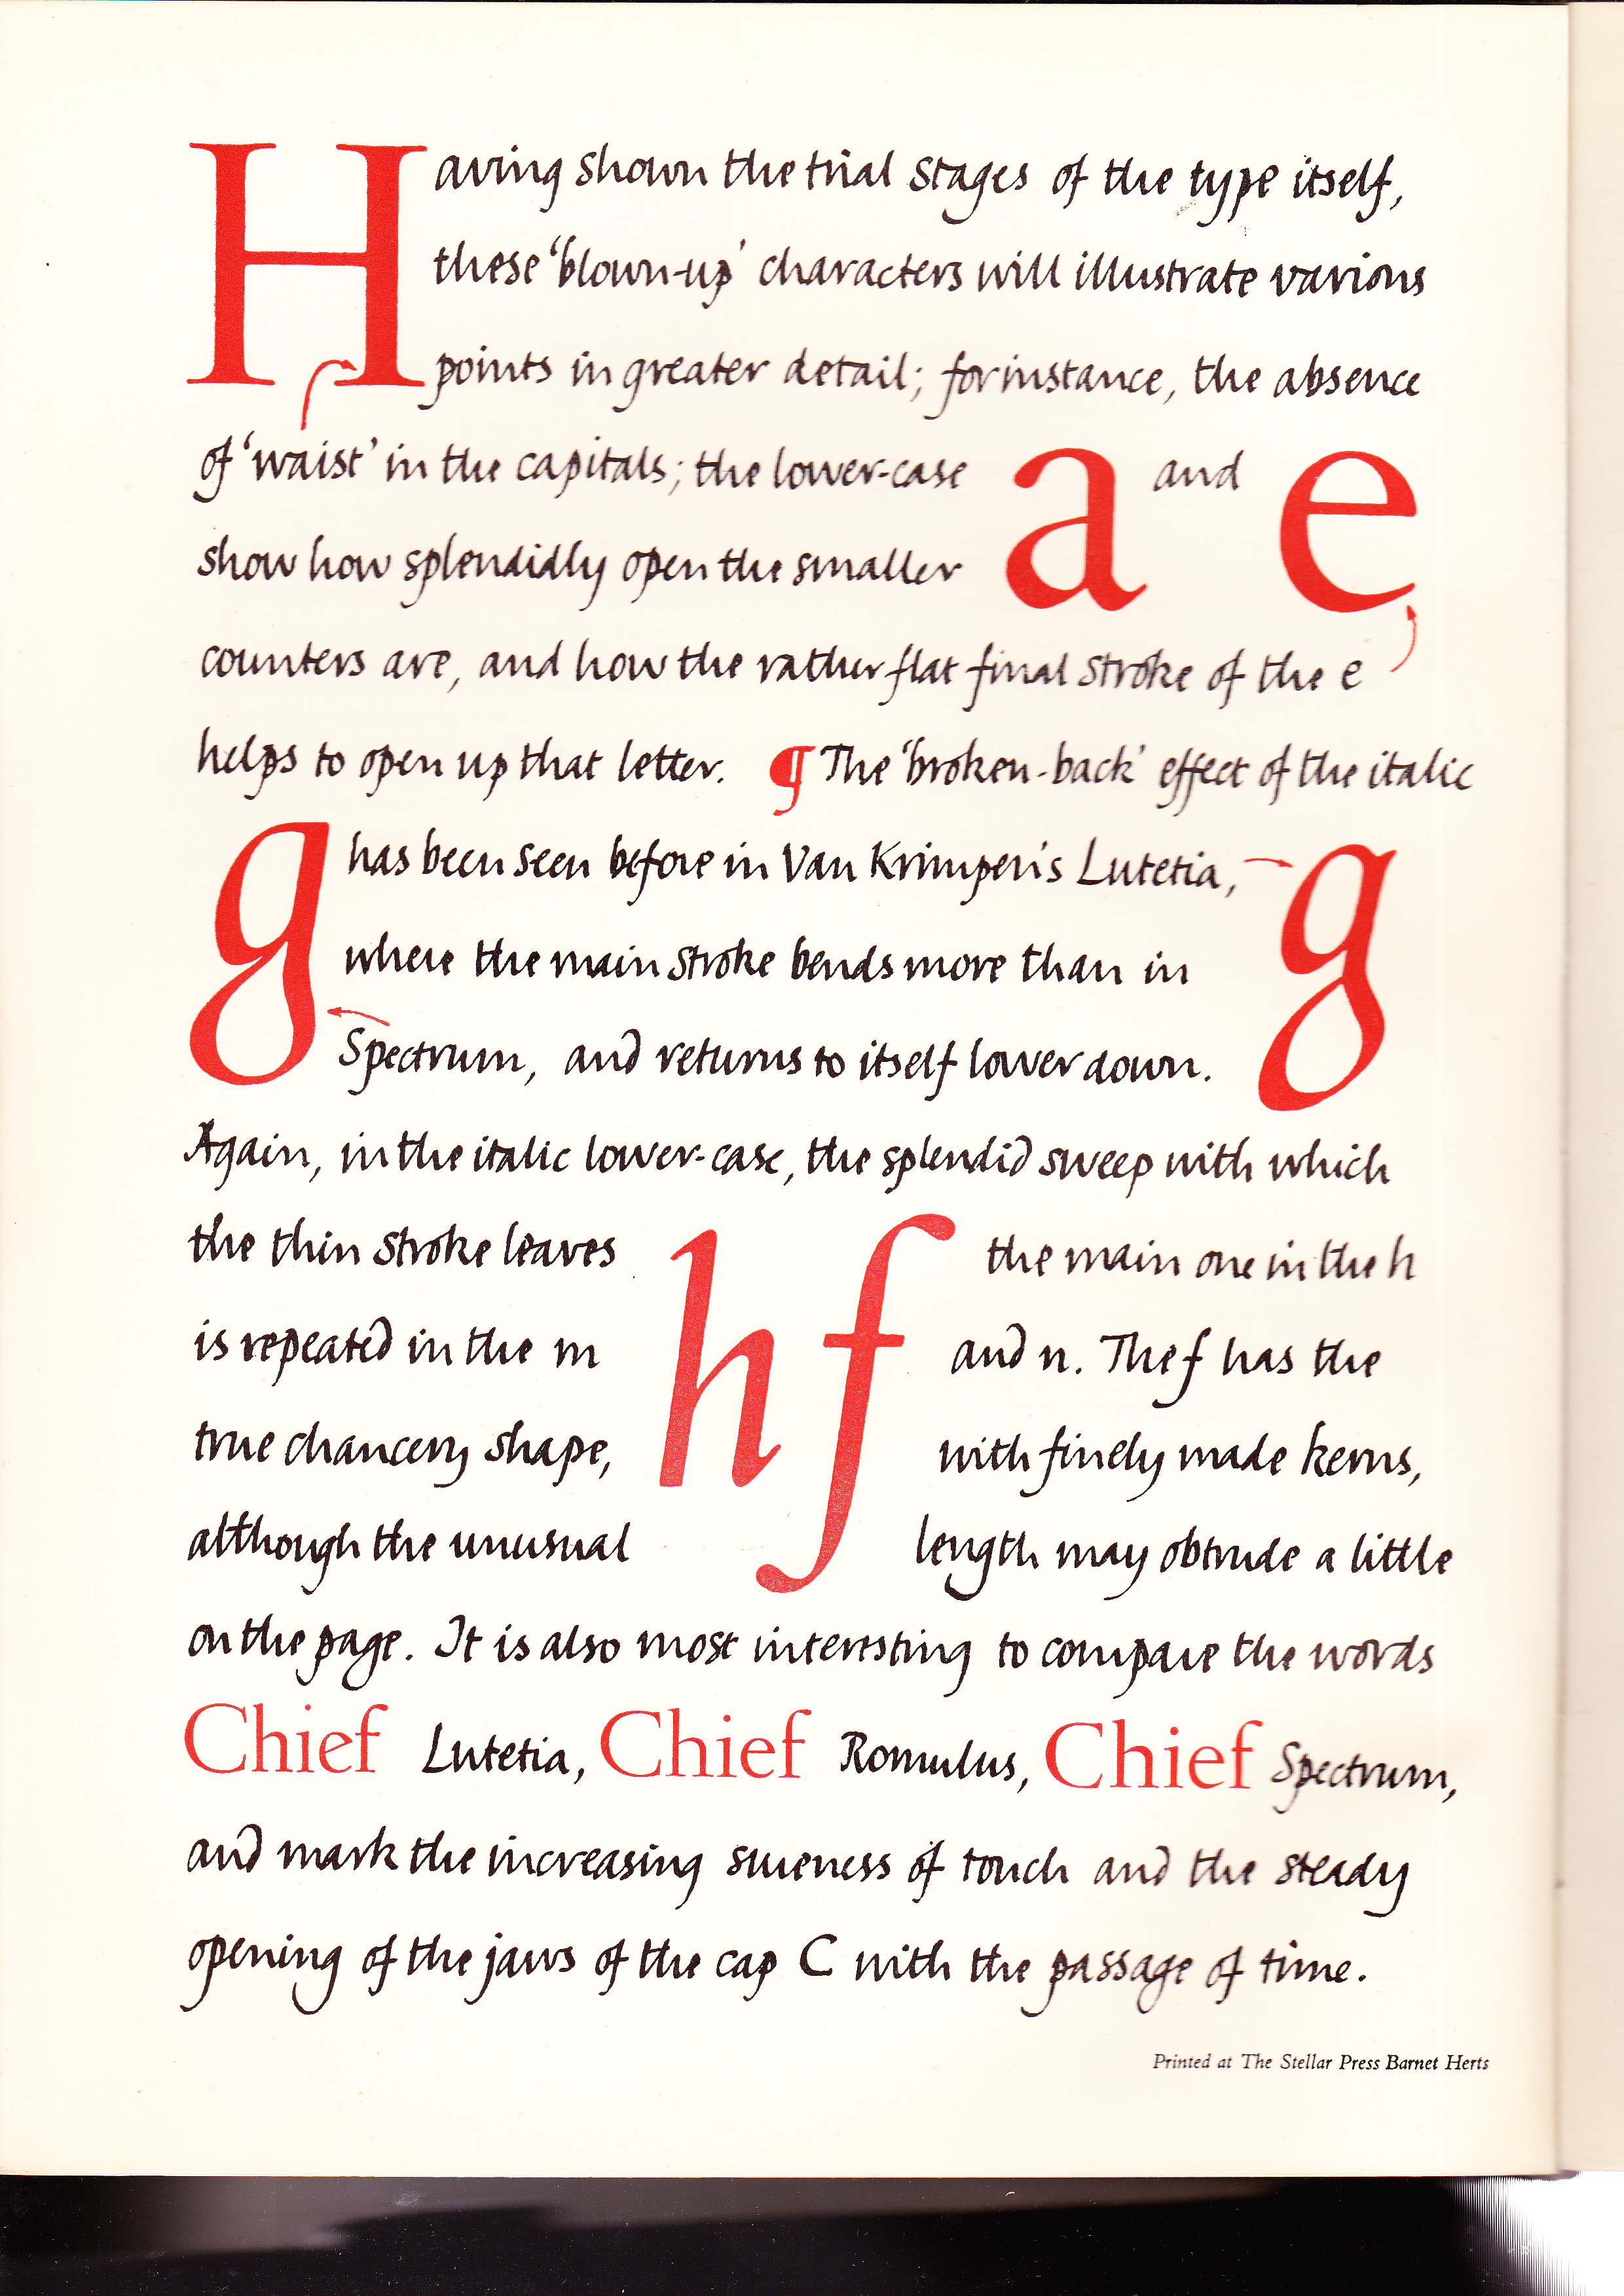 Having shown the trial stages of the type itself,
these ‘blown-up’ characters will illustrate various
points in greater detail; for instance, the absence
of ‘waist’ in the capitals; the lower-case a and e
show how splendidly open the smaller
counters are, and how the rather flat final stroke of the e
helps to open up that letter. ¶ The ‘broken-back’ effect of the italic
g has been seen before in Van Krimpen's Lutetia, g
where the main stroke bends more than in
Spectrum, and returns to itself lower down.
Again, in the italic lower-case, the splendid sweep with which
the thin stroke leaves the main one in the h
h f
is repeated in the m and n. The f has the
true chancery shape, with finely made kerns,
although the unusual length may obtrude a little
on the page. It is also most interesting to compare the words
Chief Lutetia, Chief Romulus, Chief Spectrum,
and mark the increasing sureness of touch and the steady
opening of the jaws of the cap C with the passage of time.
Printed at The Stellar Press Barnet Herts